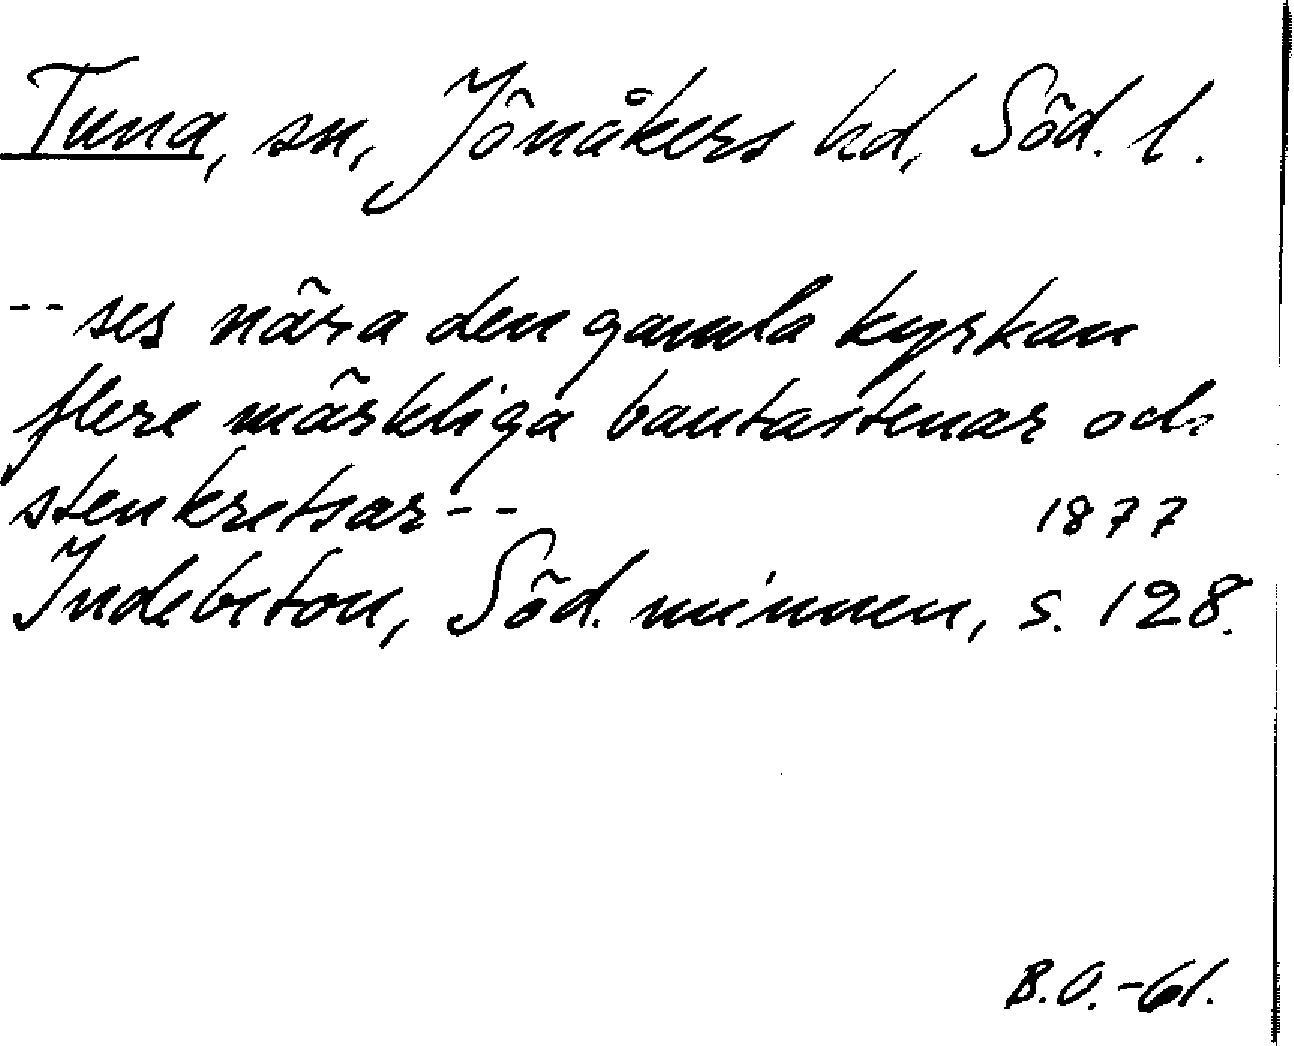 Tuna, sn, Jönåkers hd, Söd. l.
-- ses nära den gamla kyrkan
flere märkliga bautastenar och
stenkretsar -- 1877
Indebetou, Söd. minnen, s. 128.
B.O. -61.